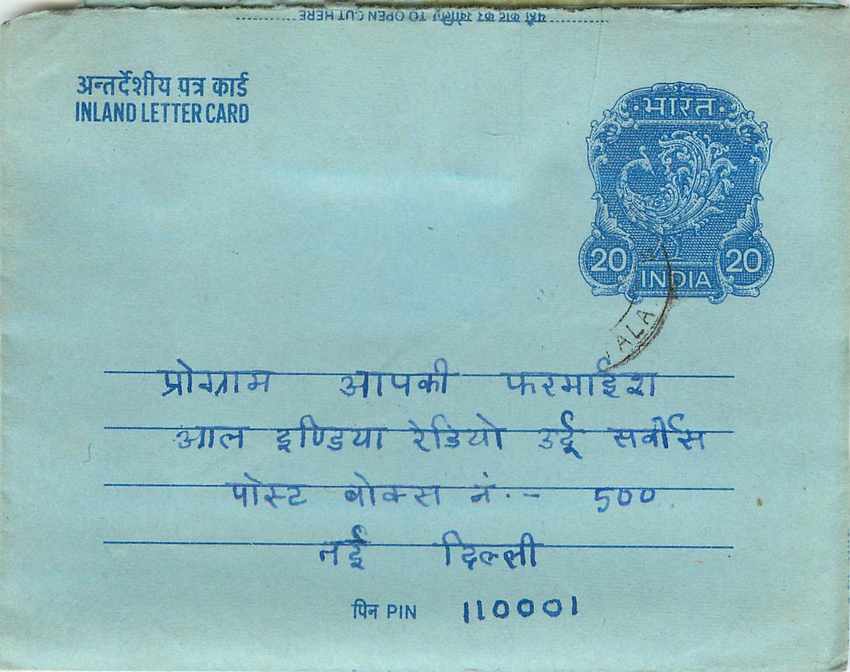 यहाँ काट कर खोलिए TO OPEN CUT HERE
अन्तर्देशीय पत्र कार्ड
INLAND LETTER CARD
भारत
20 INDIA 20
प्रोग्राम आपकी फरमाईश
आल इण्डिया रेडियो उर्दू सर्वीस
पोस्ट बोक्स नं.- 500
नई दिल्ली
पिन PIN 110001